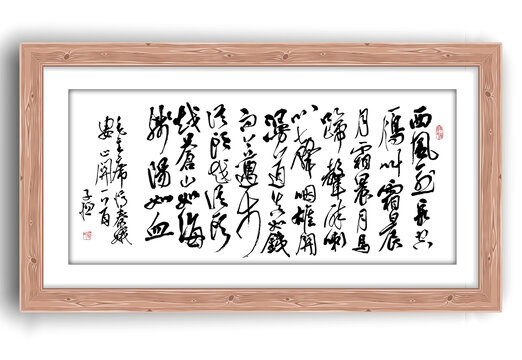 西風烈長空
雁叫霜晨
月霜晨月馬
蹄聲碎喇
叭聲咽雄關
漫道真如鐵
而今邁步
從頭越從頭
越蒼山如海
殘陽如血
毛主席詞憶秦娥
婁山關一首